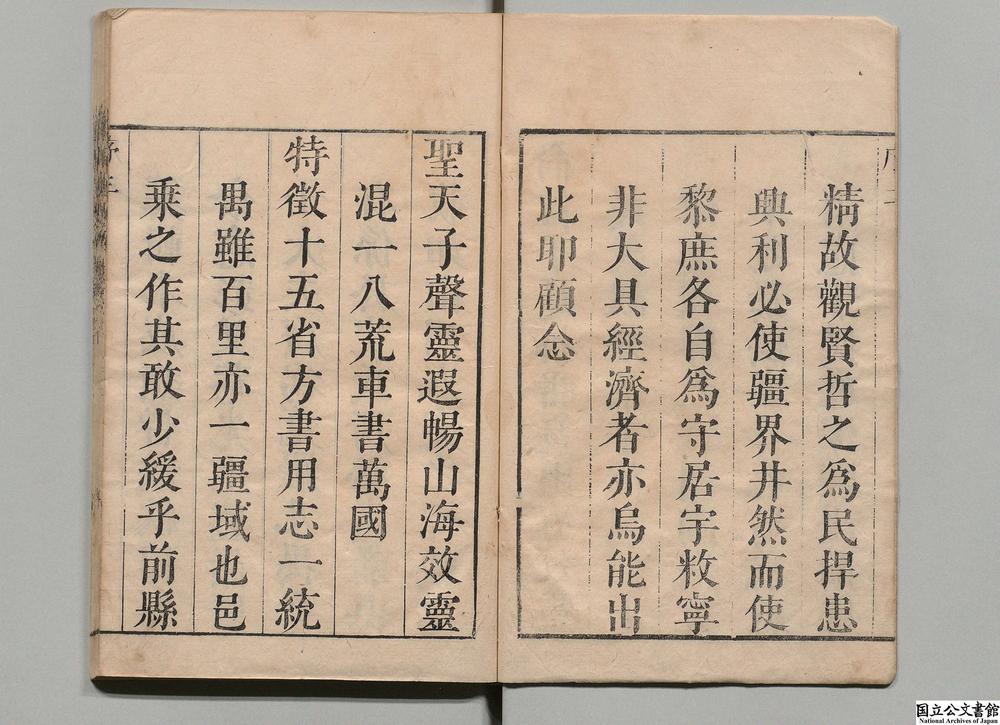 精故觀賢哲之爲民捍患
興利必使疆界井然而使
黎庶各自爲守居宇敉寧
非大具經濟者亦烏能出
此耶顧念
聖天子聲靈遐暢山海效靈
混一八荒車書萬國
特徵十五省方書用志一統
禺雖百里亦一疆域也邑
乘之作其敢少緩乎前縣
国立公文書館
National Archives of Japan